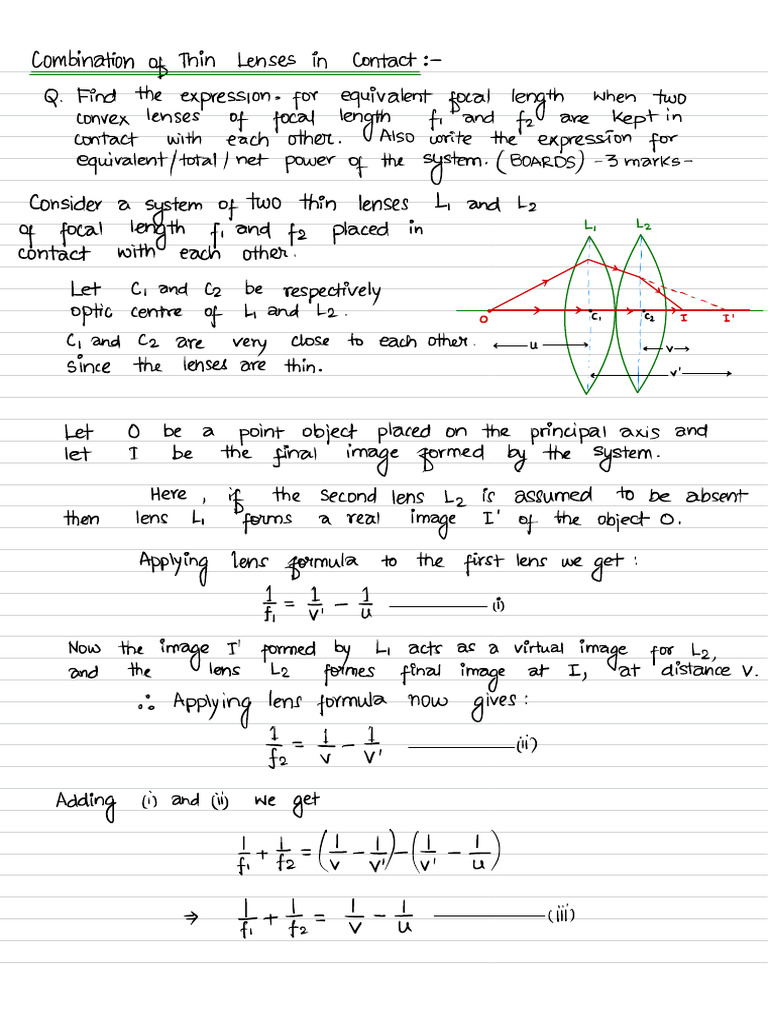 Combination of Thin Lenses in Contact :-
Q. Find the expression. for equivalent focal length when two
convex lenses of focal length f₁ and f₂ are kept in
contact with each other. Also write the expression for
equivalent/total/net power of the system. (BOARDS) -3 marks-
Consider a system of two thin lenses L₁ and L₂
of focal length f₁ and f₂ placed in
contact with each other.
Let C₁ and C₂ be respectively
optic centre of L₁ and L₂.
C₁ and C₂ are very close to each other.
since the lenses are thin.
L₁ L₂
O C₁ C₂ I I'
u v
v'
Let O be a point object placed on the principal axis and
let I be the final image formed by the system.
Here, if the second lens L₂ is assumed to be absent
then lens L₁ forms a real image I' of the object O.
Applying lens formula to the first lens we get :
1/f₁ = 1/v' - 1/u —— (i)
Now the image I' formed by L₁ acts as a virtual image for L₂,
and the lens L₂ formes final image at I, at distance v.
∴ Applying lens formula now gives :
1/f₂ = 1/v - 1/v' —— (ii)
Adding (i) and (ii) we get
1/f₁ + 1/f₂ = (1/v - 1/v') - (1/v' - 1/u)
⇒ 1/f₁ + 1/f₂ = 1/v - 1/u —— (iii)